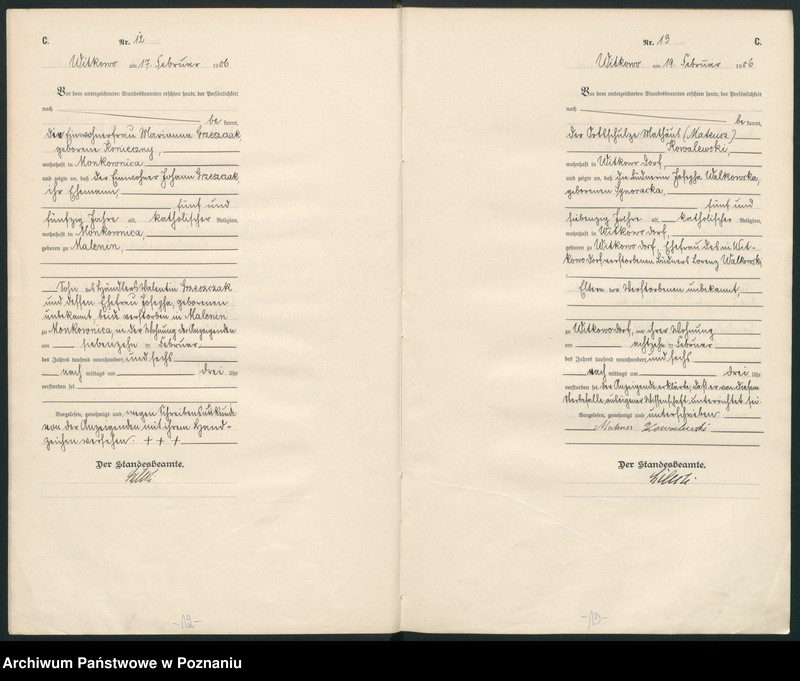 C.
Nr. 12
Witkowo am 17. Februar 1906
Vor dem unterzeichneten Standesbeamten erschien heute, der Persönlichkeit
nach
be kannt,
die Einwohnerfrau Marianna Grzeszczak,
geborene Konieczny,
wohnhaft in Monkownica
und zeigte an, daß der Einwohner Johann Grzeszczak,
ihr Ehemann,
fünf und
fünfzig Jahre alt, katholischer Religion,
wohnhaft in Monkownica,
geboren zu Malenin,
Sohn des Händlers Valentin Grzeszczak
und dessen Ehefrau Josepha, geborenen
unbekannt, beide verstorben in Malenin
zu Monkownica, in der Wohnung der Anzeigenden
am siebenzehn ten Februar
des Jahres tausend neunhundert und sechs
nach mittags um drei Uhr
verstorben sei
Vorgelesen, genehmigt und wegen Schreibensunkunde
von der Anzeigenden mit ihrem Hand-
zeichen versehen. + + +
Der Standesbeamte.
-12-
Nr. 13
C.
Witkowo am 19. Februar 1906
Vor dem unterzeichneten Standesbeamten erschien heute, der Persönlichkeit
nach
be kannt,
der Ortsschulze Mathäus (Mateusz)
Kowalewski,
wohnhaft in Witkowo Dorf,
und zeigte an, daß die Büdnerin Josepha Walkowska,
geborenen
fünf und
siebenzig Jahre alt, katholischer Religion,
wohnhaft in Witkowo Dorf,
geboren zu Witkowo Dorf, Ehefrau des in Wit-
kowo Dorf verstorbenen Büdners Lorenz Walkowski,
Eltern der Verstorbenen unbekannt,
zu Witkowo Dorf, in ihrer Wohnung
am achtzehn ten Februar
des Jahres tausend neunhundert und sechs
nach mittags um drei Uhr
verstorben sei. der Anzeigende erklärte, daß er von diesem
Sterbefalle aus eigener Wissenschaft unterrichtet sei.
Vorgelesen, genehmigt und unterschrieben
Mateusz Kowalewski
Der Standesbeamte.
-13-
Archiwum Państwowe w Poznaniu